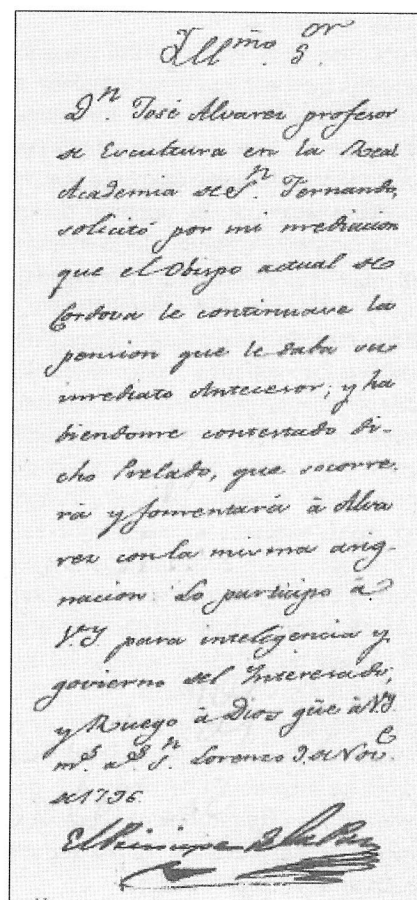 Yllmo. Sor.
Dn. José Alvarez profesor
de Escultura en la Real
Academia de Sn. Fernando,
solicitó por mi mediacion
que el Obispo actual de
Cordova le continuase la
pension que le daba su
inmediato Antecesor; y ha
biendome contestado di-
cho Prelado, que socorre-
rá y fomentará à Alva
rez con la misma asig-
nacion: Lo participo à
V.Y para inteligencia y
govierno del Interesado;
y Ruego à Dios gūe à V.Y.
ms. as. Sn. Lorenzo 9 de Nove.
de 1796.
El Principe de la Paz